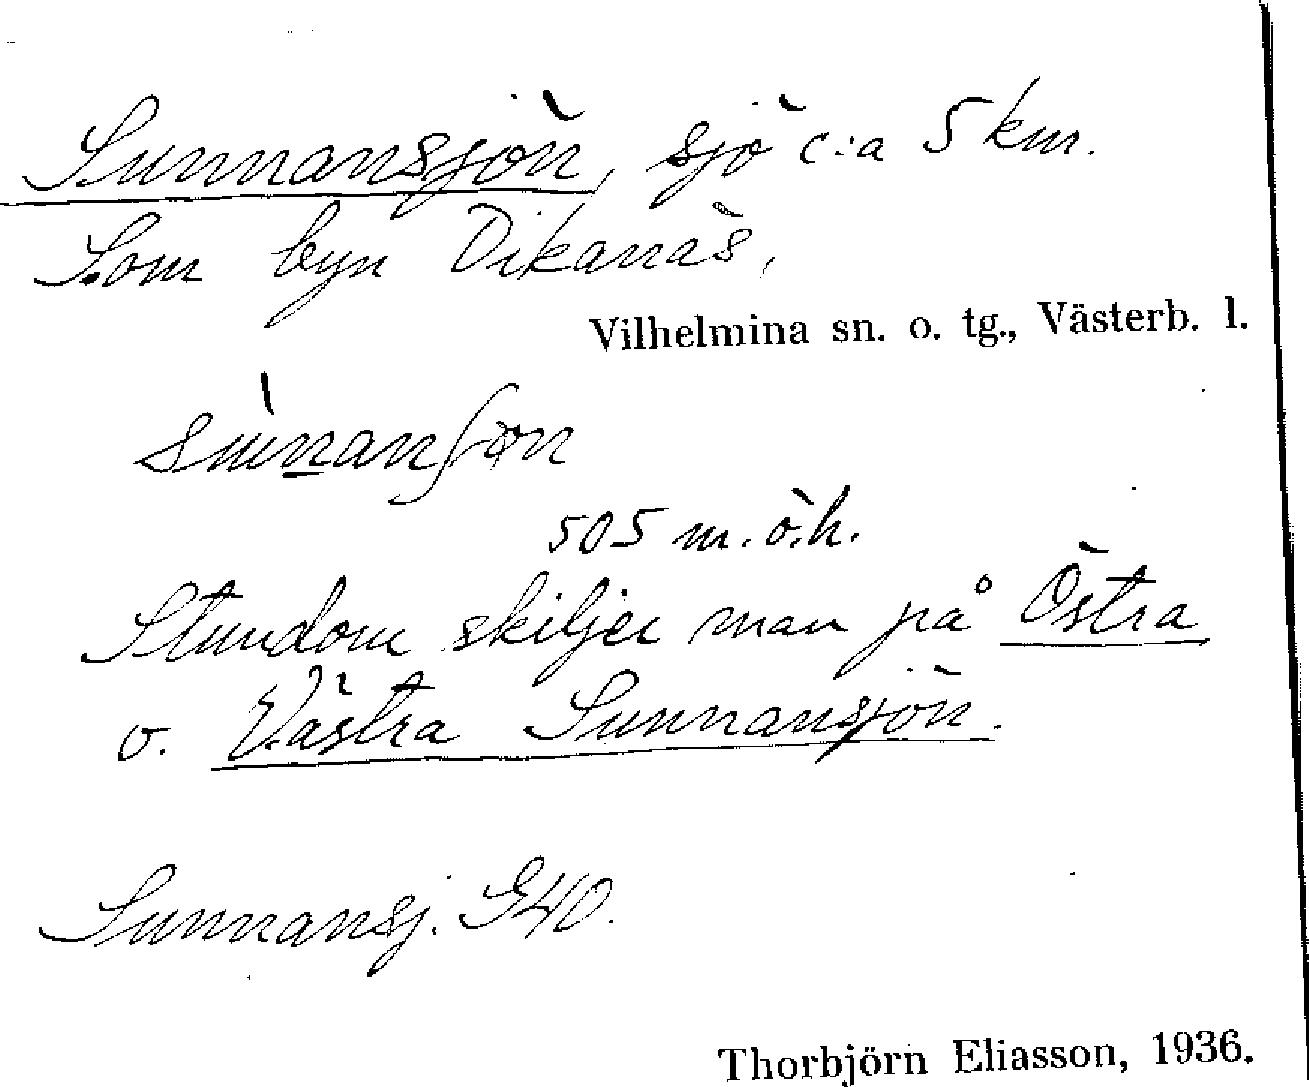 Sunnansjön, sjö c:a 5 km.
Som byn Dikanäs,
Vilhelmina sn. o. tg., Västerb. l.
505 m. ö.h.
Stundom skiljer man på Östra
o. Västra Sunnansjön.
Sunnansj. G40.
Thorbjörn Eliasson, 1936.